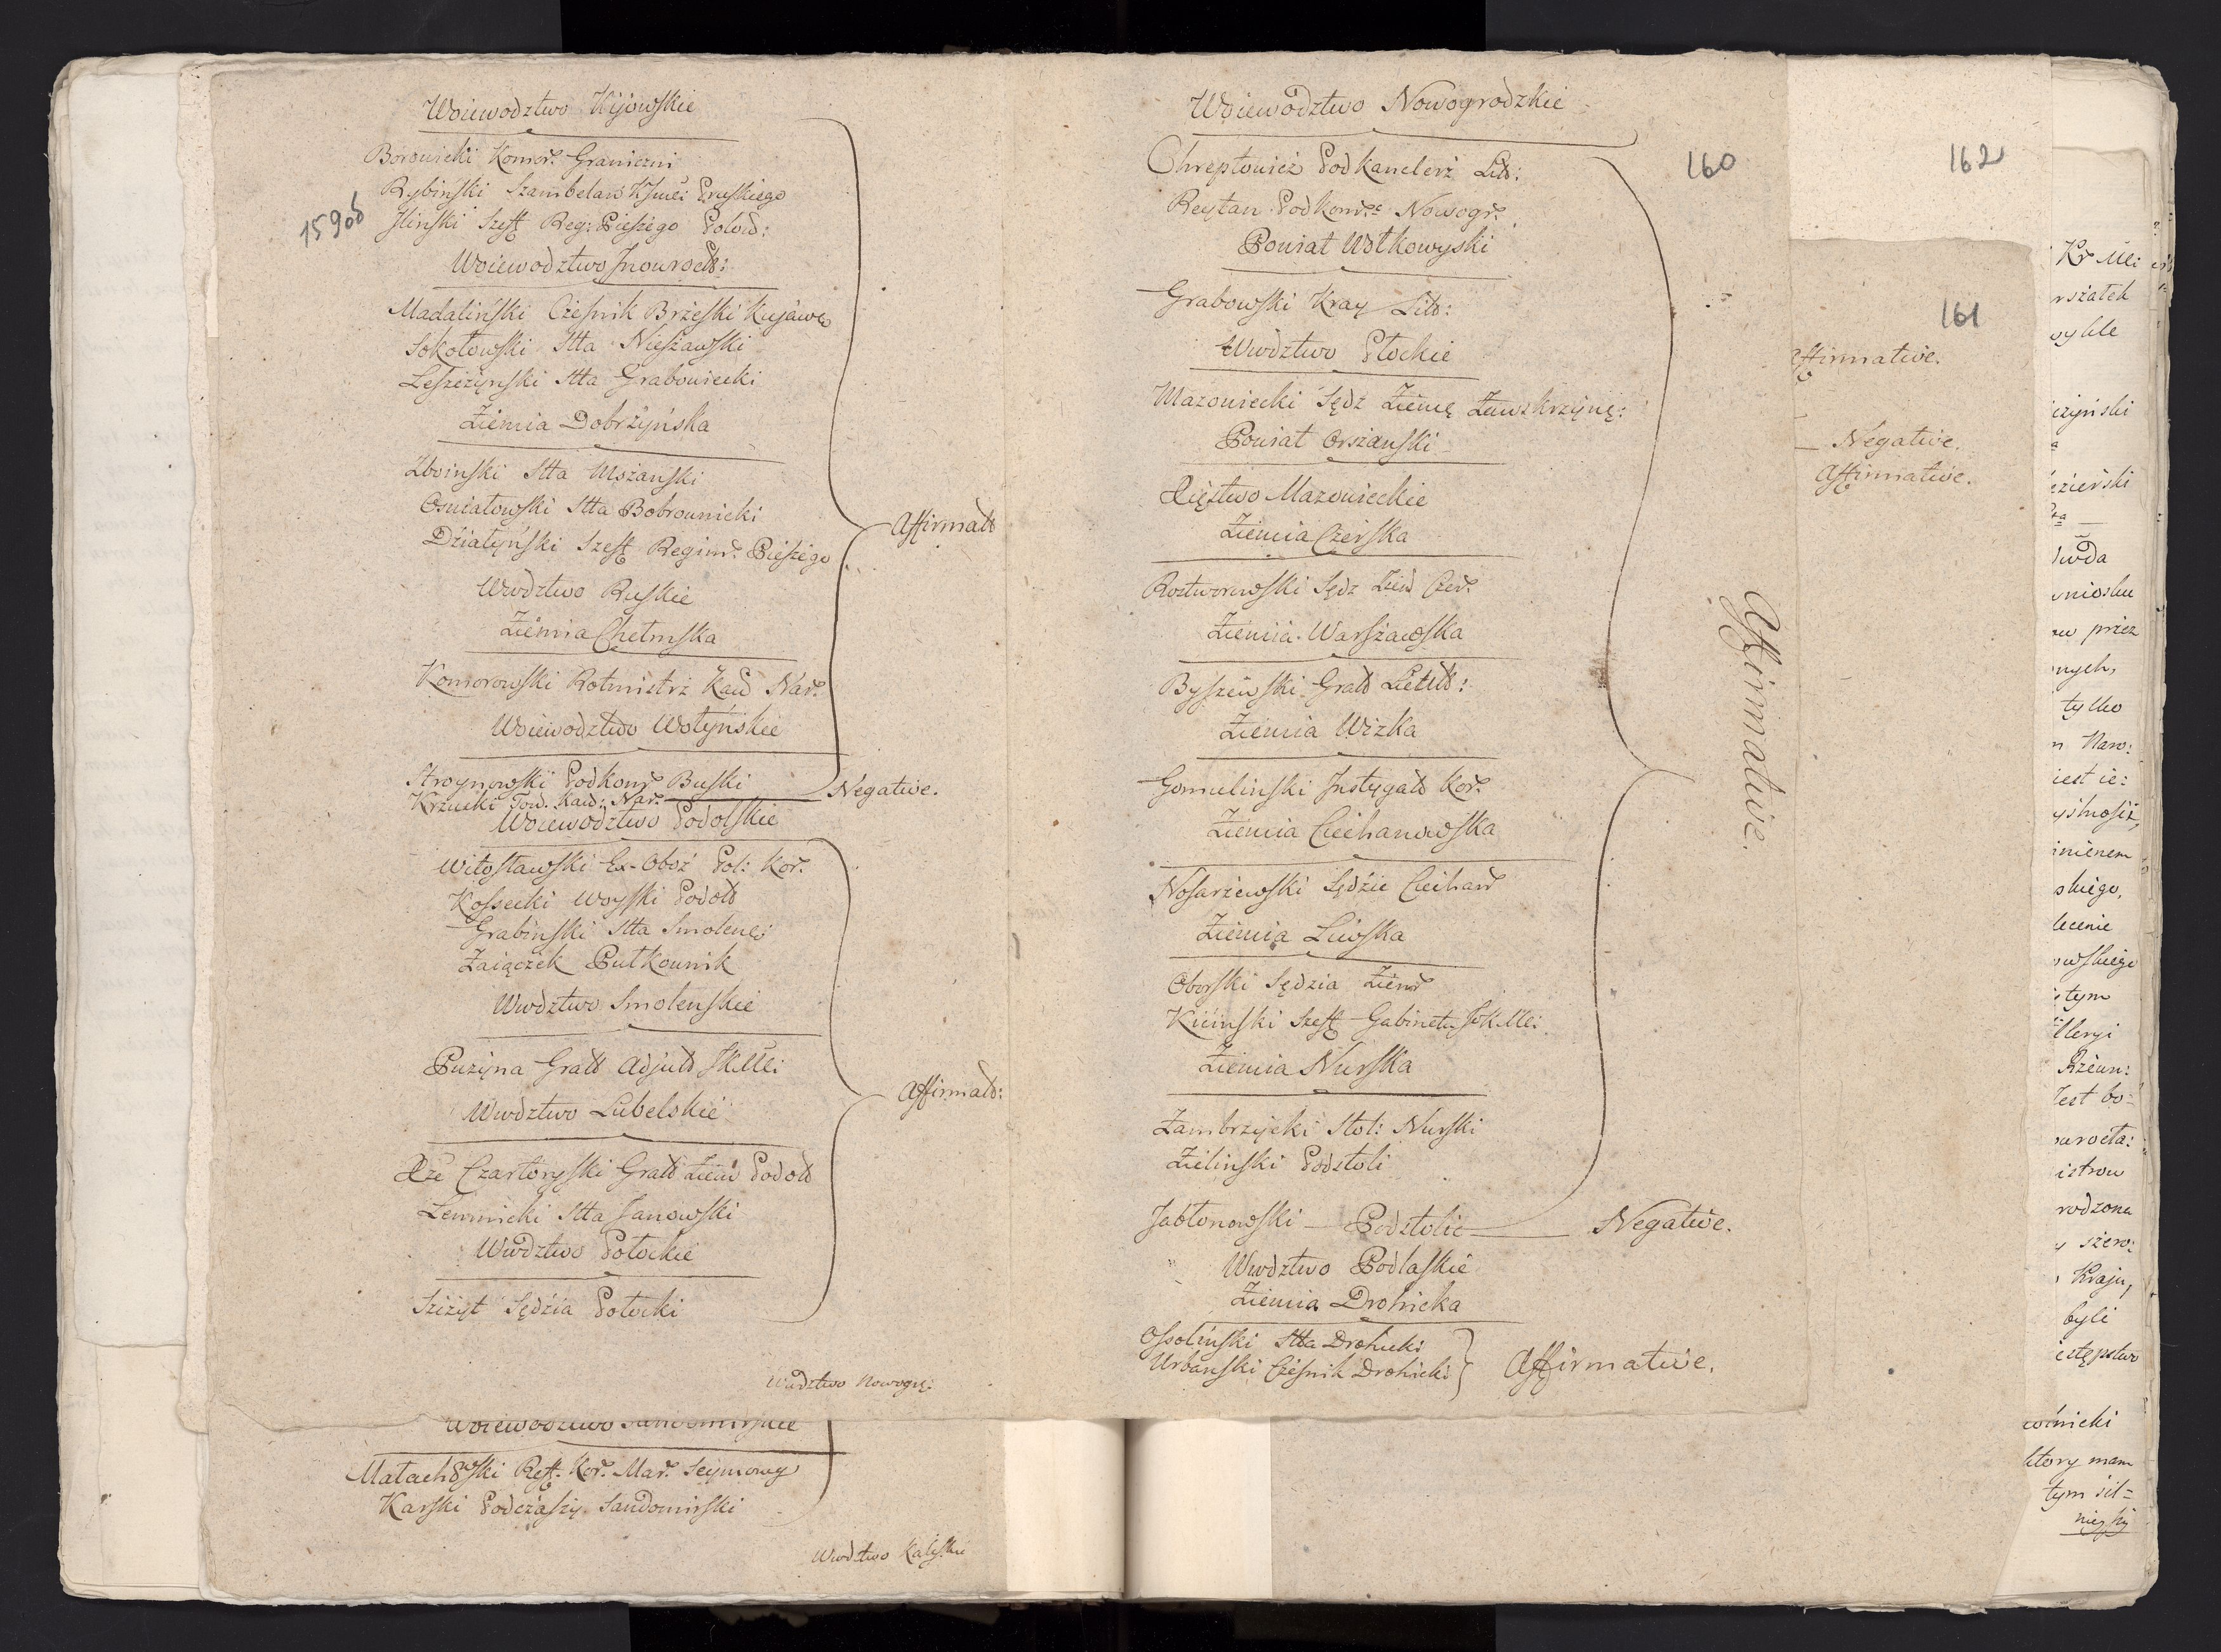 Woiewodztwo Kijowskie
Borowicki Komor. Graniczni
Rybiński Szambelan KJmci Pruskiego
159
Jliński Szeff Reg: Pieszego
Woiewodztwo Jnowrocł:
Madaliński Cześnik Brzeski Kujaw
Sokołowski Stta Nieszawski
Leszczyński Stta Grabowiecki
Ziemia Dobrzyńska
Zboinski Stta Mszański
Osniałowski Stta Bobrownicki
Działyński Szeff Regim. Pieszego
Affirmat
Wwdztwo Ruskie
Ziemia Chełmska
Komorowski Rotmistrz Kaw Nar.
Woiewodztwo Wołyńskie
Stroynowski Podkom Buski
Negative.
Krzucki Tow. Kaw: Nar.
Woiewodztwo Podolskie
Witosławski Ex-Oboź Pol: Kor.
Kossecki Woyski Podol
Grabinski Stta Smolens
Zaiączek Pułkownik
Wwdztwo Smolenskie
Puzyna Grałł Adjut JKMci
Affirmat:
Wwdztwo Lubelskie
Xże Czartoryski Grałł Ziem Podol
Lemnicki Stta Janowski
Wwdztwo Połockie
Szczyt Sędzia Połocki
Wwdztwo Nowogr:
Woiewodztwo Sandomirskie
Małachowski Reff. Kor. Mar. Seymowy
Karski Podczaszy Sandomirski
Wwdztwo Kaliskie
Woiewodztwo Nowogrodzkie
160
Chreptowicz Podkanclerz Lit:
Reytan Podkom. Nowogr.
Powiat Wołkowyski
Grabowski Kray Lit:
Wwdztwo Płockie
Mazowiecki Sędz Ziem Zawskrzyn:
Powiat Orszanski
Xięstwo Mazowieckie
Ziemia Czerska
Roztworowski Sędz Ziem Czer.
Ziemia Warszawska
Byszewski Grałł Lietut:
Ziemia Wizka
Gomulinski Instygat Kor.
Ziemia Ciechanowska
Nosarzewski Sędzic Ciechan
Ziemia Liwska
Oborski Sędzia Ziem
Kicinski Szeff Gabinetu JKMci
Ziemia Nurska
Zambrzycki Stol: Nurski
Zielinski Podstoli
Affirmative.
Jabłonowski Podstolic Negative.
Wwdztwo Podlaskie
Ziemia Drohicka
Ossoliński Stta Drohicki
Urbanski Cześnik Drohicki
Affirmative.
162
161
ffirmative.
Negative.
Affirmative.
Kr Mci
rszałek
czyński
tylko
skiego,
lecenie
tym
rodzona
Kraju,
byli
który mam